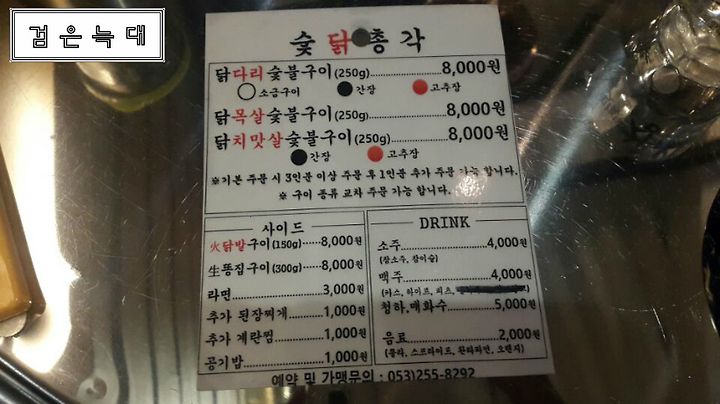 검은늑대
숯닭총각
닭다리숯불구이(250g)........8,000원
소금구이 간장 고추장
닭목살숯불구이(250g)........8,000원
닭치맛살숯불구이(250g)........8,000원
간장 고추장
※기본 주문 시 3인분 이상 주문 후 1인분 추가 주문 가능 합니다.
※ 구이 종류 교차 주문 가능 합니다.
사이드
火닭발구이(150g)......8,000원
生똥집구이(300g)......8,000원
라면........3,000원
추가 된장찌개........1,000원
추가 계란찜........1,000원
공기밥........1,000원
DRINK
소주........4,000원
(참소주, 참이슬)
맥주........4,000원
(카스, 하이트, 피츠,
청하,매화수........5,000원
음료........2,000원
(콜라, 스프라이트, 환타파인, 오렌지)
예약 및 가맹문의 : 053)255-8292